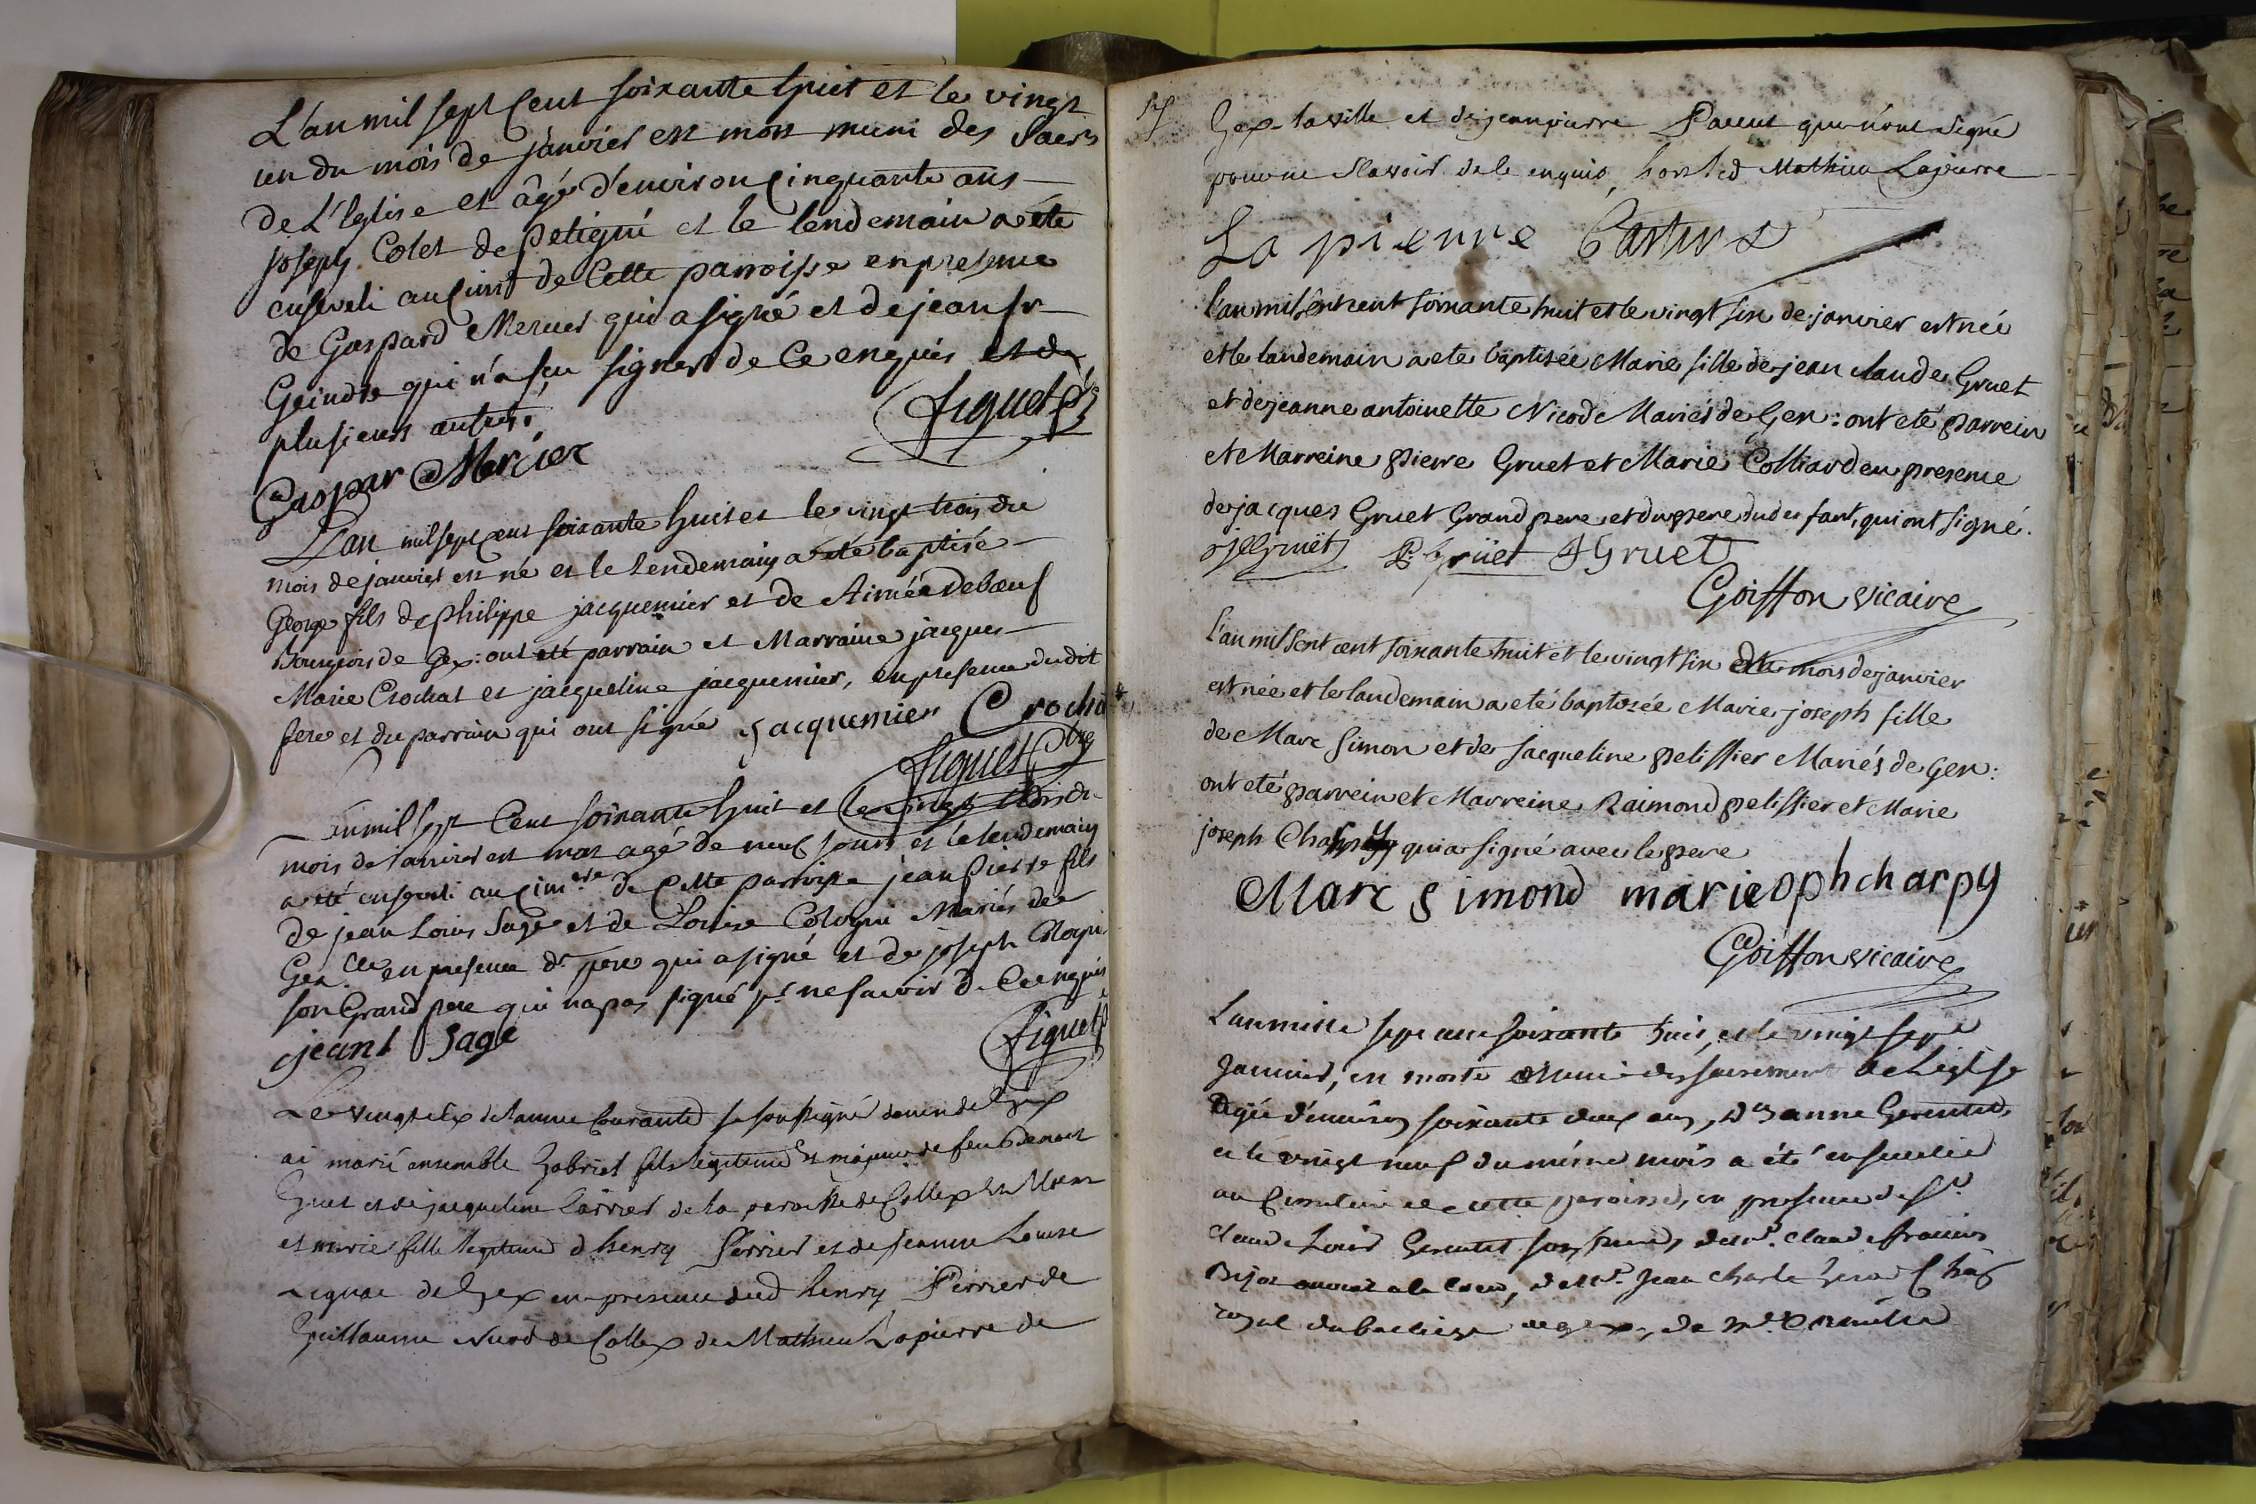 L'an mil sept Cent soixante huit et le vingt
un du mois de janvier est mort muni des Sacrs
de L'Eglise et âgé d'environ Cinquante ans
joseph Colet de petigni et le lendemain a été
enseveli au Cimre de Cette parroisse en presence
de Gaspard Mercier qui a signé et de jean fr
Geindre qui n'a seu signer de Ce enquis et de
plusieurs autres.
Figuet
Gaspar Mercier
L'an mil sept cent soixante huit et le vingt trois du
mois de janvier est né et le lendemain a été baptisé
George fils de philippe jacquemier et de Aimée Debœuf
Bourgeois de Gex: ont été parrain et Marraine jacques
Marie Crochat et jacqueline jacquemier, en presence dudit
pere et du parrain qui ont signé Jacquemier Crochat
Figuet
L'an mil sept Cent soixante huit et le vingt trois du
mois de janvier est mort agé de neuf jours et le lendemain
a été enseveli au cimre de Cette parroisse jean pierre fils
de jean Louis Sage et de Louise Cologni Mariés de
Gex en presence dt pere qui a signé et de joseph Cologni
son Grand pere qui n'a pas signé pr ne savoir de Ce enquis
jeanl Sage Figuet
Le vingt six de l'annee Courante je soussigné de Gex
ai marié ensemble Gabriel fils legitime et majeur de feu Benoit
Gruet et de jacqueline de la paroisse de Collex
et marie fille legitime d'henry Perrier et de jeanne Louise
de Gex en presence dud henry Perrier de
Guillaume Nicod de Collex de Mathieu Lapierre de
Gex la ville et de jeanpierre Parent qui n'ont signé
pour ne scavoir de le enquis, hors led Mathieu Lapierre
La pierre
l'an mil sept cent soixante huit et le vingt six de janvier est née
et le landemain a eté baptisée Marie fille de jean claude Gruet
et de jeanne antoinette Nicod Mariés de Gex: ont eté parrein
et Marreine pierre Gruet et Marie Colliard en presence
de jacques Gruet Grand pere et du pere dud enfant, qui ont signé.
P. Gruet J Gruet
Goiffon vicaire
l'an mil sept cent soixante huit et le vingt six du mois de janvier
est née et le landemain a eté baptisée Marie joseph fille
de Marc Simon et de Jacqueline pelissier Mariés de Gex:
ont eté parrein et Marreine Raimond pelissier et Marie
joseph Charpy qui a signé avec le pere
Marc Simond marie oph charpy
Goiffon vicaire
L'an mille sept cent soixante huit, et le vingt sept
Janvier, est morte munie des sacrements de L'eglise
agée d'environ soixante deux ans, Dlle anne Gerentet,
et le vingt neuf du même mois a été ensevelie
au Cimetiere de cette paroisse, en presence de Sr
claude Louis Gerentet son frere, de Mr. claude francois
avocat a la cour, de Mr. Jean charle
royal du bailliage de gex, de Mr.